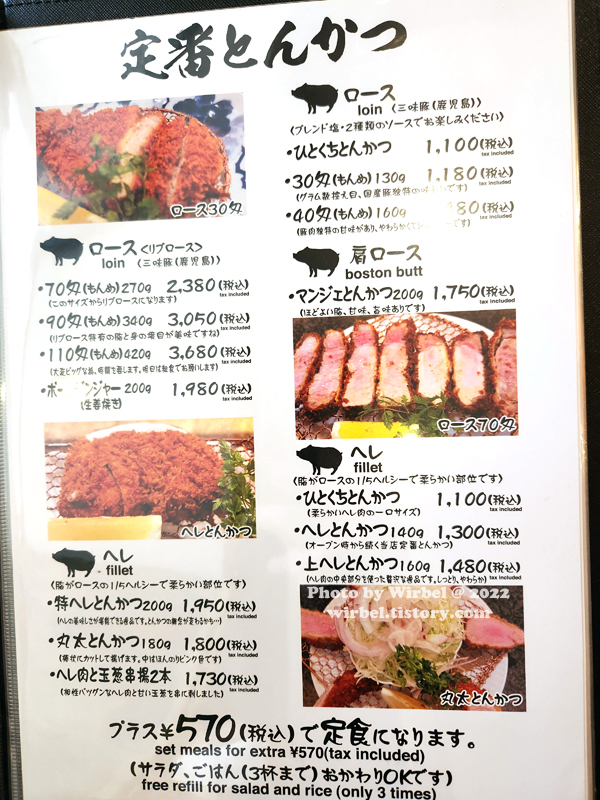 定番とんかつ
ロース
loin (三味豚(鹿児島))
(ブレンド塩・2種類のソースでお楽しみください)
・ひとくちとんかつ 1,100(税込)
tax included
・30匁(もんめ)130g 1,180(税込)
tax included
(グラム数控え目、国産豚独特の
・40匁(もんめ)160g 80(税込)
tax included
(豚肉独特の甘味があり、やわらかくて
ロース30匁
ロース<リブロース>
loin (三味豚(鹿児島))
・70匁(もんめ)270g 2,380(税込)
tax included
(このサイズからリブロースになります)
・90匁(もんめ)340g 3,050(税込)
tax included
(リブロース特有の脂と身の霜目が美味ですね)
・110匁(もんめ)420g 3,680(税込)
tax included
(大変ビッグな為、時間を要します。
200g 1,980(税込)
tax included
(生姜焼き)
肩ロース
boston butt
・マンジェとんかつ200g 1,750(税込)
tax included
(ほどよい脂、甘味、旨味ありです)
ロース70匁
ヘレとんかつ
ヘレ
fillet
(脂がロースの1/5ヘルシーで柔らかい部位です)
・ひとくちとんかつ 1,100(税込)
tax included
(柔らかいヘレ肉の一口サイズ)
・ヘレとんかつ140g 1,300(税込)
tax included
(オープン時から続く当店定番とんかつ)
・上ヘレとんかつ160g 1,480(税込)
tax included
(ヘレ肉の中央部分を使った贅沢な逸品です。しっとり、やわらか)
ヘレ
fillet
(脂がロースの1/5ヘルシーで柔らかい部位です)
・特ヘレとんかつ200g 1,950(税込)
tax included
(ヘレの美味しさが堪能できる逸品です。とんかつの概念が変わるかも…)
・丸太とんかつ180g 1,800(税込)
tax included
(豪快にカットして揚げます。中はほんのりピンク色です)
・ヘレ肉と玉葱串揚2本 1,730(税込)
tax included
(相性バツグンなヘレ肉と甘い玉葱を串に刺しました)
Photo by Wirbel @ 2022
wirbel.tistory.com
丸太とんかつ
プラス¥570(税込)で定食になります。
set meals for extra ¥570(tax included)
(サラダ、ごはん(3杯まで)おかわりOKです)
free refill for salad and rice (only 3 times)